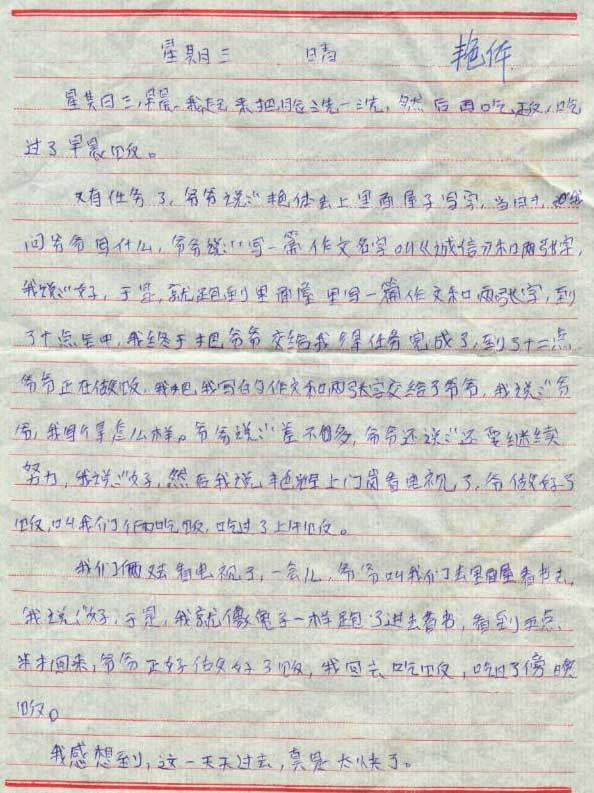 星期三 晴 艳体
星其日三,早晨,我起来把脸洗一洗,然后再吃饭,吃
过了早晨饭。
又有任务了,爷爷说:"艳体去上里面屋子写字,当时,我
问爷爷写什么,爷爷说:"写一篇作文名字叫《诚信》和两张字,
我说:"好,于是,就跑到里面屋里写一篇作文和两张字,到
了十点去中,我终于把爷爷交给我得任务完成了,到了十二点
爷爷正在做饭,我把我写的作文和两张字交给了爷爷,我说:"爷
爷,我写得怎么样。爷爷说:"差不多,爷爷还说:"还要继续
努力,我说:"好,然后我说,上门岗看电视了,爷做好了
饭,叫我们俩吃饭,吃过了上午饭。
我们俩又去看电视了,一会儿,爷爷叫我们去里面屋看书去,
我说:"好,于是,我就像兔子一样跑了进去看书,看到五点
半才回来,爷爷正好做好了饭,我回去吃饭,吃了傍晚
饭。
我感想到,这一天天过去,真是太快了。